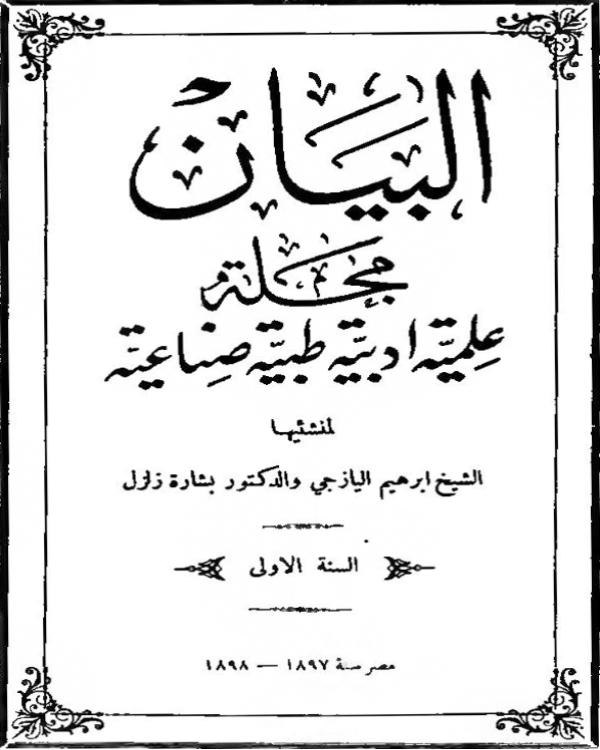 البيان
مجلة
علمية ادبية طبية صناعية
لمنشئيها
الشيخ ابرهيم اليازجي والدكتور بشارة زلزل
السنة الاولى
مصر سنة ١٨٩٧ — ١٨٩٨